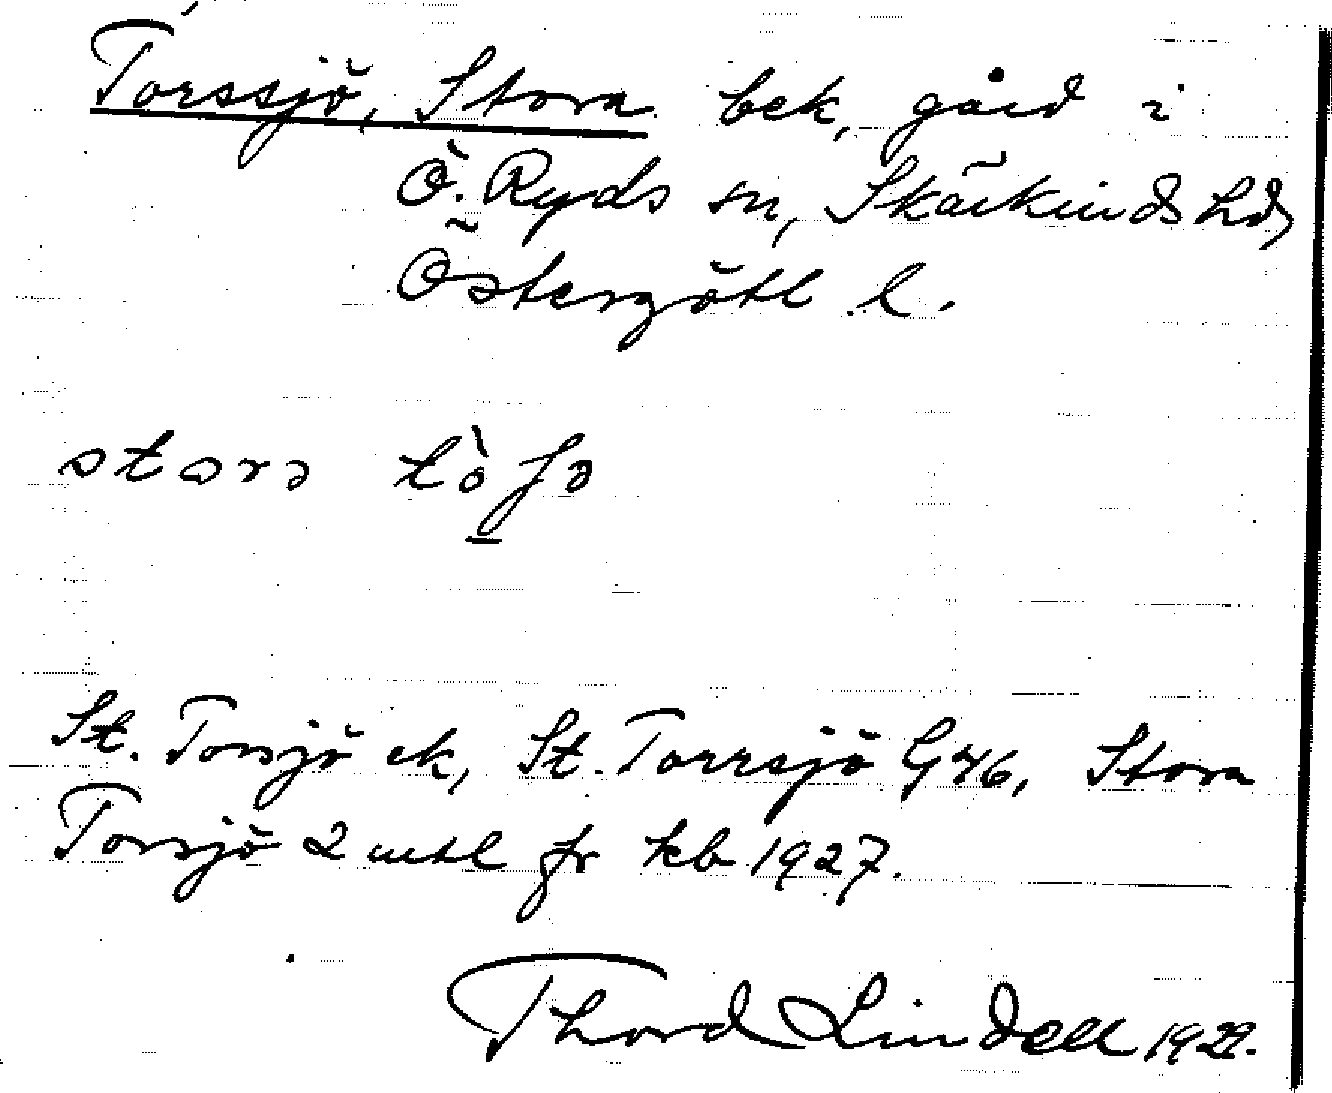 Torssjö, Stora bek, gård i
Ö. Ryds sn, Skärkinds hd,
Östergötl l.
stora tòʃə
St. Torsjö ek, St. Torrsjö G 46, Stora
Torsjö 2 mtl fr kb 1927.
Thord Lindell 1929.